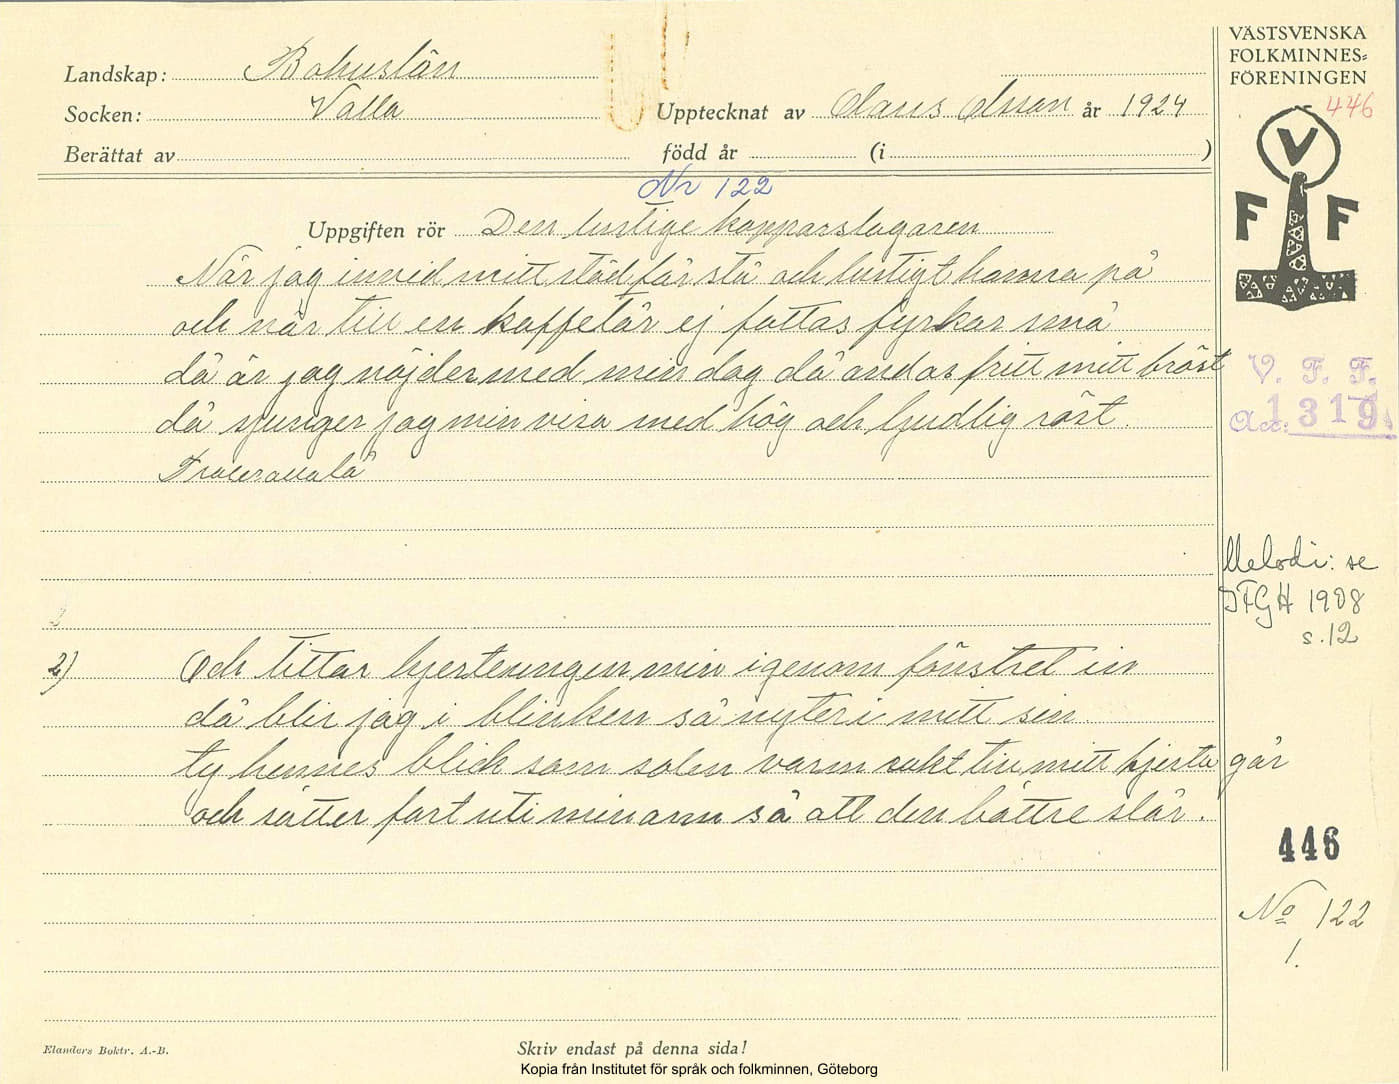 Landskap: Bohuslän
Socken: Valla
Upptecknat av Olaus Olsson år 1924
Berättat av
född år (i )
VÄSTSVENSKA
FOLKMINNES=
FÖRENINGEN
446
V
F F
Nr 122
Uppgiften rör Den lustige kopparslagaren
När jag invid mitt städ får stå och lustigt hamra på
och när till en kaffetår ej fattas fyrkar små
då är jag nöjder med min dag då andas fritt mitt bröst
då sjunger jag min visa med hög och ljudlig röst.
V. F. F.
Acc: 1319.
Melodi: se
IFGH 1908
s. 12
2) Och tittar hjerteungen min igenom fönstret in
då blir jag i blinken så nyter i mitt sin
ty hennes blick som solen varm rakt till mitt hjerta går
och sätter fart uti min arm så att den bättre slår.
446
No 122
1.
Elanders Boktr. A.-B.
Skriv endast på denna sida!
Kopia från Institutet för språk och folkminnen, Göteborg